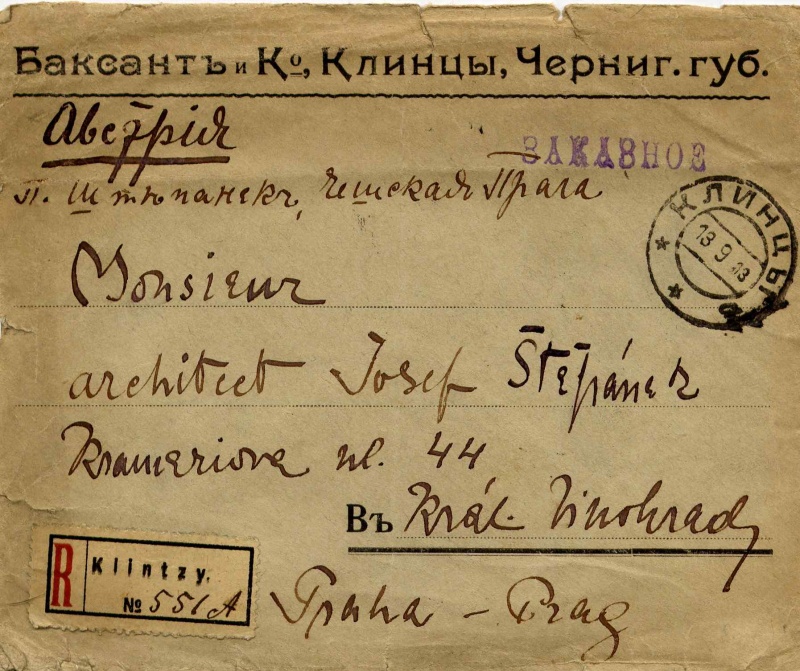 Баксантъ и Ко, Клинцы, Черниг. губ.
Австрія
ЗАКАЗНОЕ
П. Штѣпанекъ, Чешская Прага
КЛИНЦЫ
13 9 13
Monsieur
architect Josef Štěpánek
Krameriova ul. 44
Въ Král. Vinohrady
R Klintzy.
№ 551 A
Praha - Prag